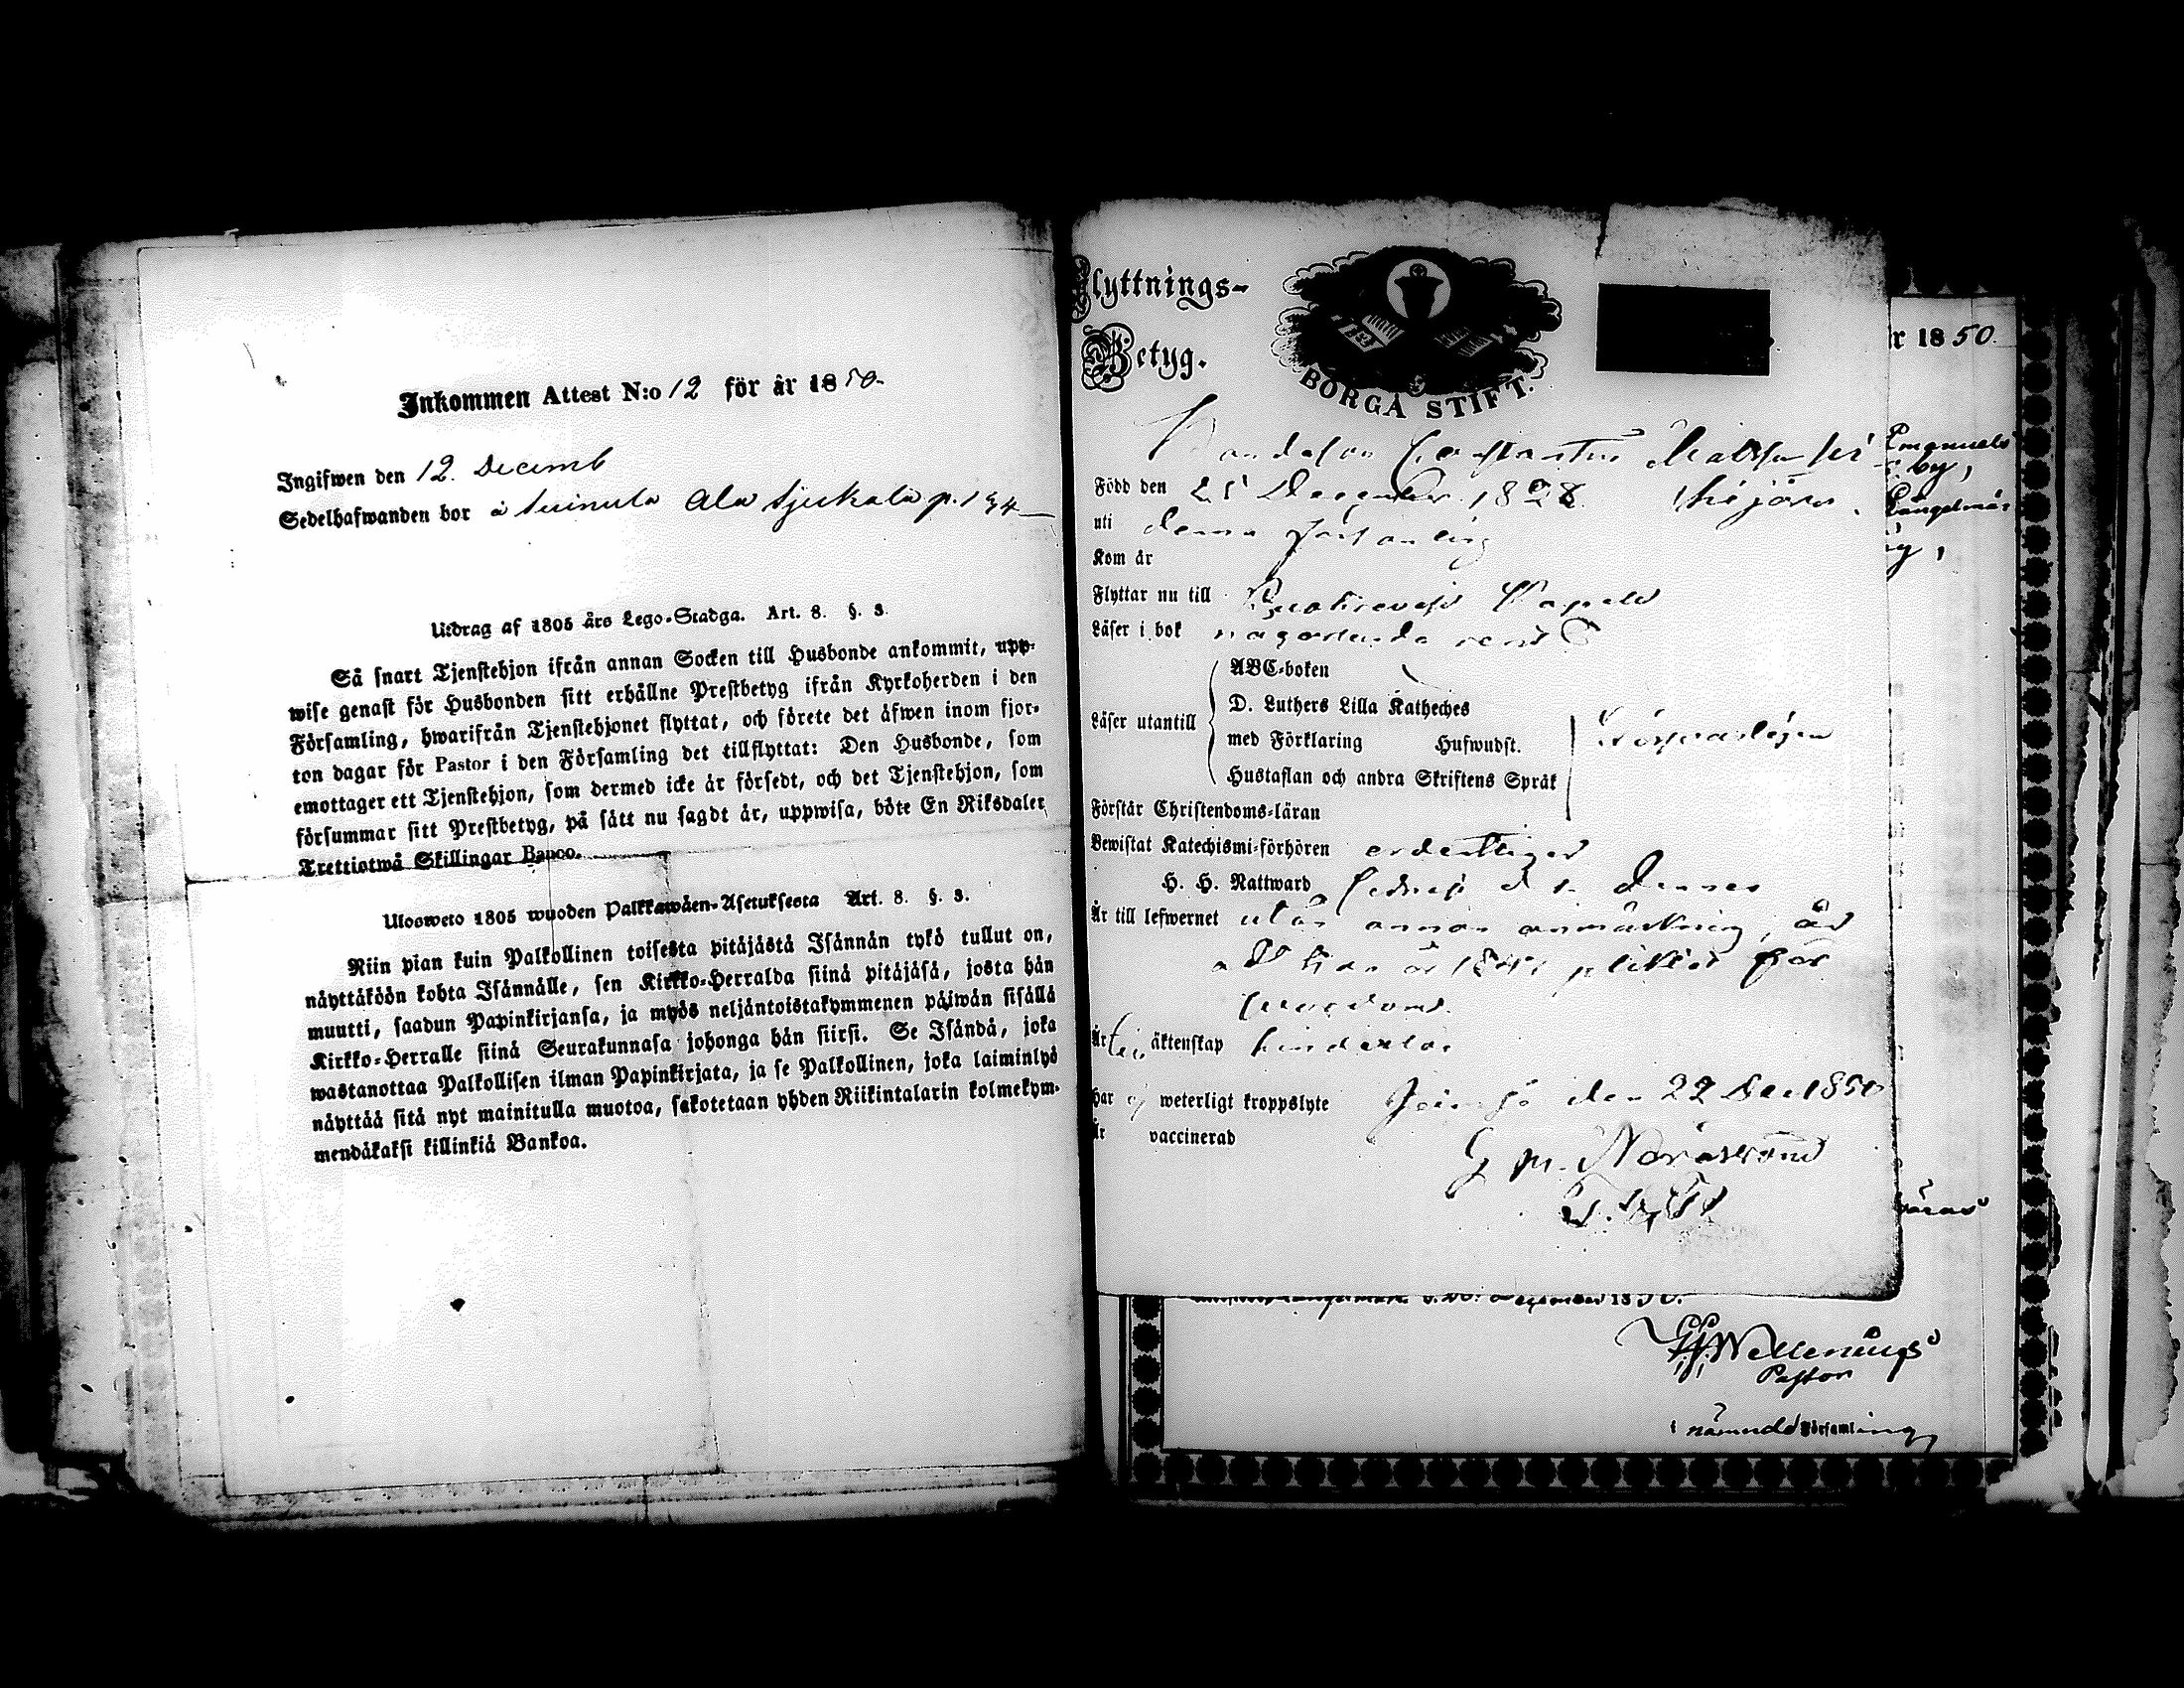 Inkommen Attest N:o 12 för år 1850.
Ingifwen den 12. Decemb
Sedelhafwanden bor å Ala Sjukala p. 194
Utdrag af 1805 års Lego-Stadga. Art. 8. §. 3.
Så snart Tjenstehjon ifrån annan Socken till Husbonde ankommit, upp-
wise genast för Husbonden sitt erhållne Prestbetyg ifrån Kyrkoherden i den
Församling, hwarifrån Tjenstehjonet flyttat, och förete det äfwen inom fjor-
ton dagar för Pastor i den Församling det tillflyttat: Den Husbonde, som
emottager ett Tjenstehjon, som dermed icke är försedt, och det Tjenstehjon, som
försummar sitt Prestbetyg, på sätt nu sagdt är, uppwisa, böte En Riksdaler
Trettiotwå Skillingar Banco.
Ulosweto 1805 wuoden Palkkawäen-Asetuksesta Art. 8. §. 3.
Niin pian kuin Palkollinen toisesta pitäjästä Isännän tykö tullut on,
näyttäköön kohta Isännälle, sen Kirkko-Herralda siinä pitäjäsä, josta hän
muutti, saadun Papinkirjansa, ja myös neljäntoistakymmenen päiwän sisällä
Kirkko-Herralle siinä Seurakunnasa johonga hän siirsi. Se Isändä, joka
wastanottaa Palkollisen ilman Papinkirjata, ja se Palkollinen, joka laiminlyö
näyttää sitä nyt mainitulla muotoa, sakotetaan yhden Riikintalarin kolmekym-
mendäkaksi killinkiä Bankoa.
Flyttnings-
Betyg.
BORGÅ STIFT.
Constantin
Född den 25 December 1828
uti denna församling
Kom år
Flyttar nu till Kuorevesi Kapell
Läser i bok någorlunda rent
ABC-boken
D. Luthers Lilla Katheches
Läser utantill
med Förklaring Hufwudst.
Hustaflan och andra Skriftens Språk
Förstår Christendoms-läran
Bewistat Katechismi-förhören ordentligen
H. H. Nattward
Är till lefwernet utan annan anmärkning, än
att han år 1841 pliktat för
Är till äktenskap hinderlös
Har ej weterligt kroppslyte Jämsä den 22 Dec 1850
Är vaccinerad
r 1850.
Emanuels
by,
Längelmä-
December 1850.
Pastor
i nämnde Församling